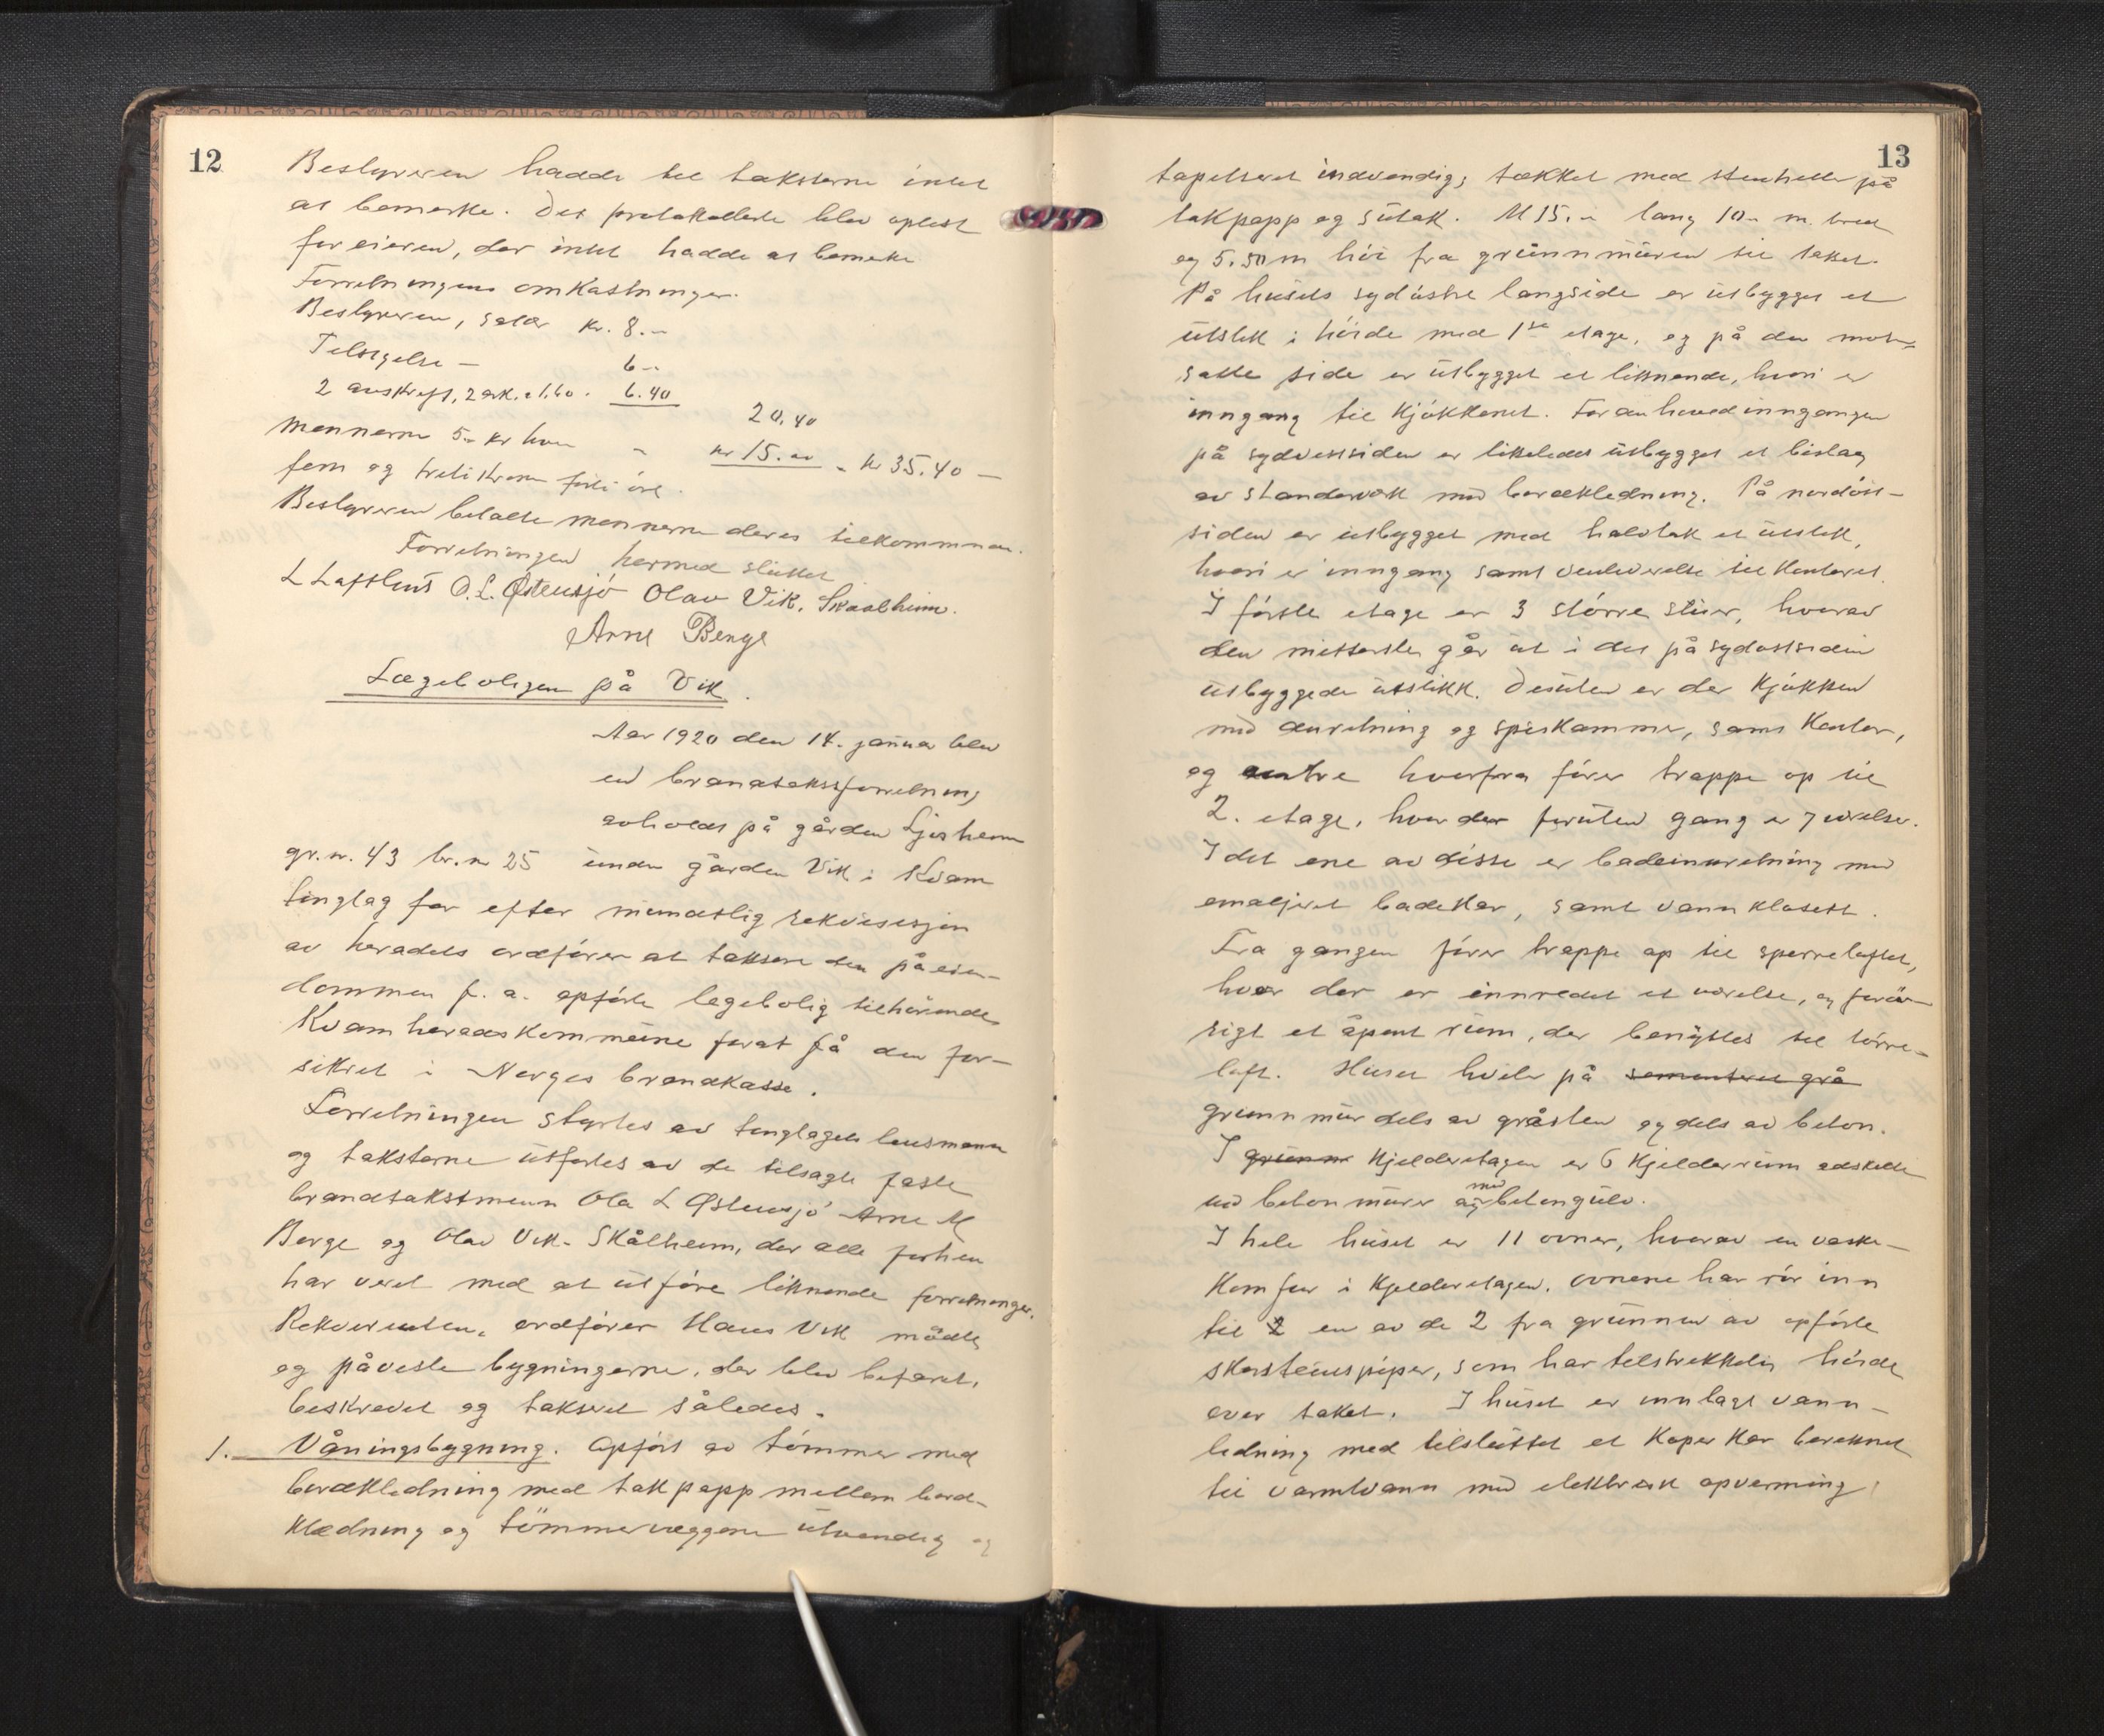 12
Bestyreren hadde til taksterne intet
at bemerke. Det protokollerte blev oplest
for eieren, der intet hadde at bemerke
Forretningens omkastninger.
Bestyreren, salær kr. 8.-
Tilsigelse - 6.-
2 avskrift, 2 ark. a 1.60. 6.40
20.40
Mennerne 5.- kr hver - kr 15.00 - kr 35.40 -
fem og treti kroner førti øre.
Bestyreren betalte mennerne deres tilkommende.
Forretningen hermed sluttet
L Lafthus O. L. Østensjø Olav Vik, Skaalheim.
Arne Berge
Lægeboligen på Vik.
Aar 1920 den 14. januar blev
en brandtakstforretning
avholdt på gården Ljosheim
gr.nr. 43 br.nr 25 under gården Vik i Kvam
tinglag for efter mundtlig rekvisisjon
av heradets ordfører at taksere den på eien-
dommen f. a. opførte lægebolig tilhørende
Kvam heradskommune forat få den for-
sikret i Norges brandkasse.
Forretningen styrtes av tinglagets lensmann
og taksterne utførtes av de tilsagte faste
brandtakstmenn Ola L Østensjø Arne M
Berge og Olav Vik-Skålheim, der alle forhen
har veret med at utføre liknende forretninger.
Rekvirenten, ordfører Hans Vik mødte
og påviste bygningerne, der blev befaret,
beskrevet og taksert således.
1. Våningsbygning. Opført av tømmer med
bordklædning med takpapp mellem bord-
klædning og tømmervæggene utvendig og
13
tapetseret indvendig, tækket med stenheller på
takpapp og sutak. M 15.- lang 10.- m. bred
og 5.50 m høi fra grunnmuren til taket.
På husets sydøstre langside er utbygget et
utstikk i høide med 1ste etage, og på den mot-
satte side er utbygget et liknende, hvori er
inngang til kjøkkenet. Foran hovedinngangen
på sydvestsiden er likeledes utbygget et bislag
av standerverk med bordkledning. På nordøst-
siden er utbygget med halvtak et utstikk,
hvori er inngang samt venteværelse til kontoret.
I første etage er 3 større stuer, hvorav
den mitterste går ut i det på sydostsiden
utbyggede utstikk. Desuten er der kjøkken
med anretning og spiskammer, samt kontor,
og entre hvorfra fører trappe op til
2. etage, hvor der foruten gang er 7 værelser.
I det ene av disse er badeinnretning med
emaljeret badekar, samt vannklosett.
Fra gangen fører trappe op til sperreloftet,
hvor der er innredet et værelse, og forøv-
rigt et åpent rum, der benyttes til tørre-
loft. Huset hviler på sementeret grå
grunnmur dels av gråsten og dels av beton.
I grunnm kjelderetagen er 6 kjelderrum adskilte
ved betonmurer og med betongulv.
I hele huset er 11 ovner, hvorav en vaske-
komfur i kjelderetagen. Ovnene har rør inn
til 2 en av de 2 fra grunnen av opførte
skorstenspiper, som har tilstrekkelig høide
over taket. I huset er innlagt vann-
ledning med tilsluttet et koper kar bereknet
til varmtvann med elektrisk opverming